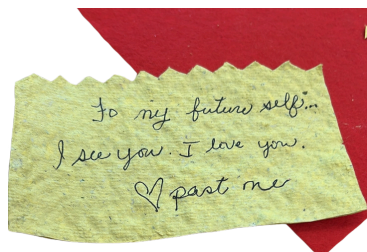 To my future self...
I see you. I love you.
♡ past me